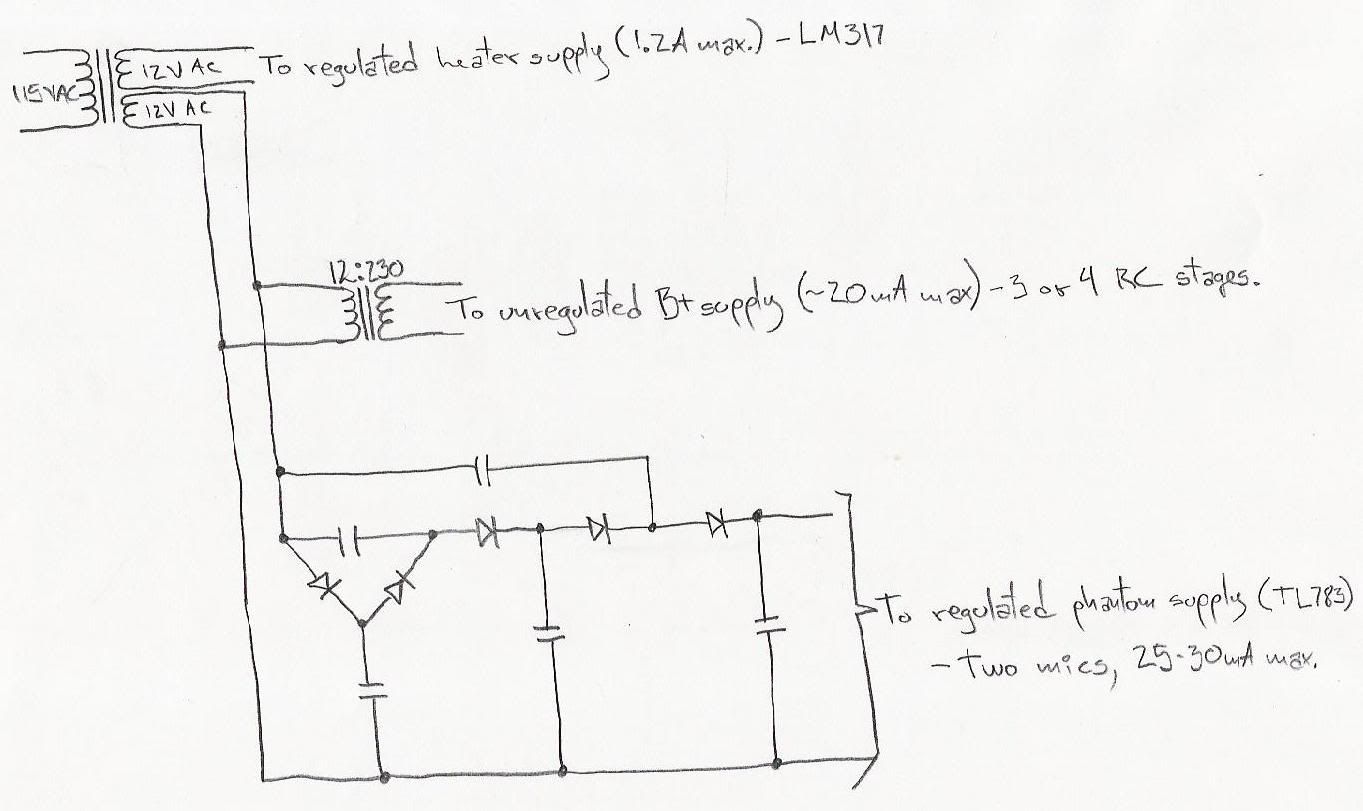 12V AC To regulated heater supply (1.2A max.) - LM317
115VAC
12V AC
12:230
To unregulated B+ supply (~20mA max) - 3 or 4 RC stages.
To regulated phantom supply (TL783)
- Two mics, 25-30mA max.